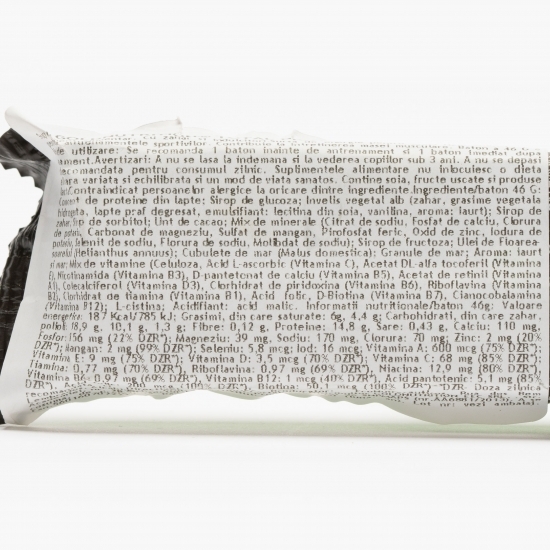 cu zahar
de utilizare: Se recomanda 1 baton inainte de antrenament si 1 baton imediat dupa
Avertizari: A nu se lasa la indemana si la vederea copiilor sub 3 ani. A nu se depasi
recomandata pentru consumul zilnic. Suplimentele alimentare nu inlocuiesc o dieta
variata si echilibrata si un mod de viata sanatos. Contine soia, fructe uscate si produse
Contraindicat persoanelor alergice la oricare dintre ingrediente.Ingrediente/baton 46 G:
de proteine din lapte: Sirop de glucoza; Invelis vegetal alb (zahar, grasime vegetala
lapte praf degresat, emulsifiant: lecitina din soia, vanilina, aroma: iaurt); Sirop de
zahar, Sirop de sorbitol; Unt de cacao; Mix de minerale (Citrat de sodiu, Fosfat de calciu, Clorura
Carbonat de magneziu, Sulfat de mangan, Pirofosfat feric, Oxid de zinc, Iodura de
potasiu, Selenit de sodiu, Florura de sodiu, Molibdat de sodiu); Sirop de fructoza; Ulei de Floarea-
soarelui (Helianthus annuus); Cubulete de mar (Malus domestica): Granule de mar; Aroma: iaurt
si mar; Mix de vitamine (Celuloza, Acid L-ascorbic (Vitamina C), Acetat DL-alfa tocoferil (Vitamina
E), Nicotinamida (Vitamina B3), D-pantotenat de calciu (Vitamina B5), Acetat de retinil (Vitamina
A), Colecalciferol (Vitamina D3), Clorhidrat de piridoxina (Vitamina B6), Riboflavina (Vitamina
B2), Clorhidrat de tiamina (Vitamina B1), Acid folic, D-Biotina (Vitamina B7), Cianocobalamina
(Vitamina B12); L-citrina; Acidifiant: acid malic. Informatii nutritionale/baton 46g: Valoare
energetica: 187 Kcal/785 kJ; Grasimi, din care saturate: 6g, 4,4 g; Carbohidrati, din care zahar,
polioli: 18,9 g, 10,1 g, 1,3 g; Fibre: 0,12 g, Proteine: 14,8 g, Sare: 0,43 g, Calciu: 110 mg,
Fosfor: 156 mg (22% DZR*); Magneziu: 39 mg, Sodiu: 170 mg, Clorura: 70 mg; Zinc: 2 mg (20%
DZR*); Mangan: 2 mg (99% DZR*); Seleniu: 5,8 mcg; Iod: 16 mcg; Vitamina A: 600 mcg (75% DZR*);
Vitamina E: 9 mg (75% DZR*); Vitamina D: 3,5 mcg (70% DZR*); Vitamina C: 68 mg (85% DZR*);
Tiamina: 0,77 mg (70% DZR*), Riboflavina: 0,97 mg (69% DZR*), Niacina: 12,9 mg (80% DZR*);
Vitamina B6: 0,97 mg (69% DZR*), Vitamina B12: 1 mcg (40% DZR*), Acid pantotenic: 5,1 mg (85%
DZR*), Biotina: 50,1 mcg (100% DZR*). *DZR- Doza zilnica
Lot nr: vezi ambalaj